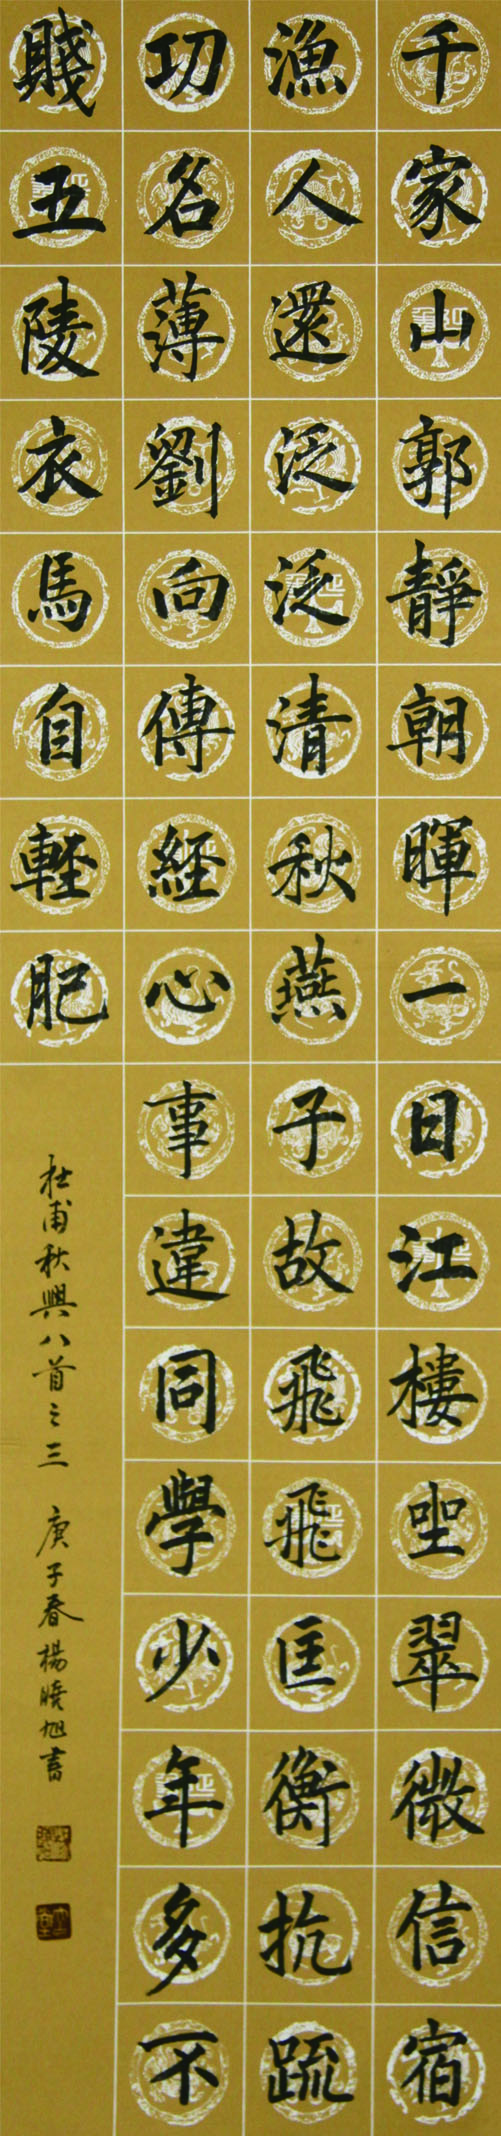 千家山郭靜朝暉一日江樓坐翠微信宿
漁人還泛泛清秋燕子故飛飛匡衡抗疏
功名薄劉向傳經心事違同學少年多不
賤五陵衣馬自輕肥
杜甫秋興八首之三 庚子春楊曉旭書